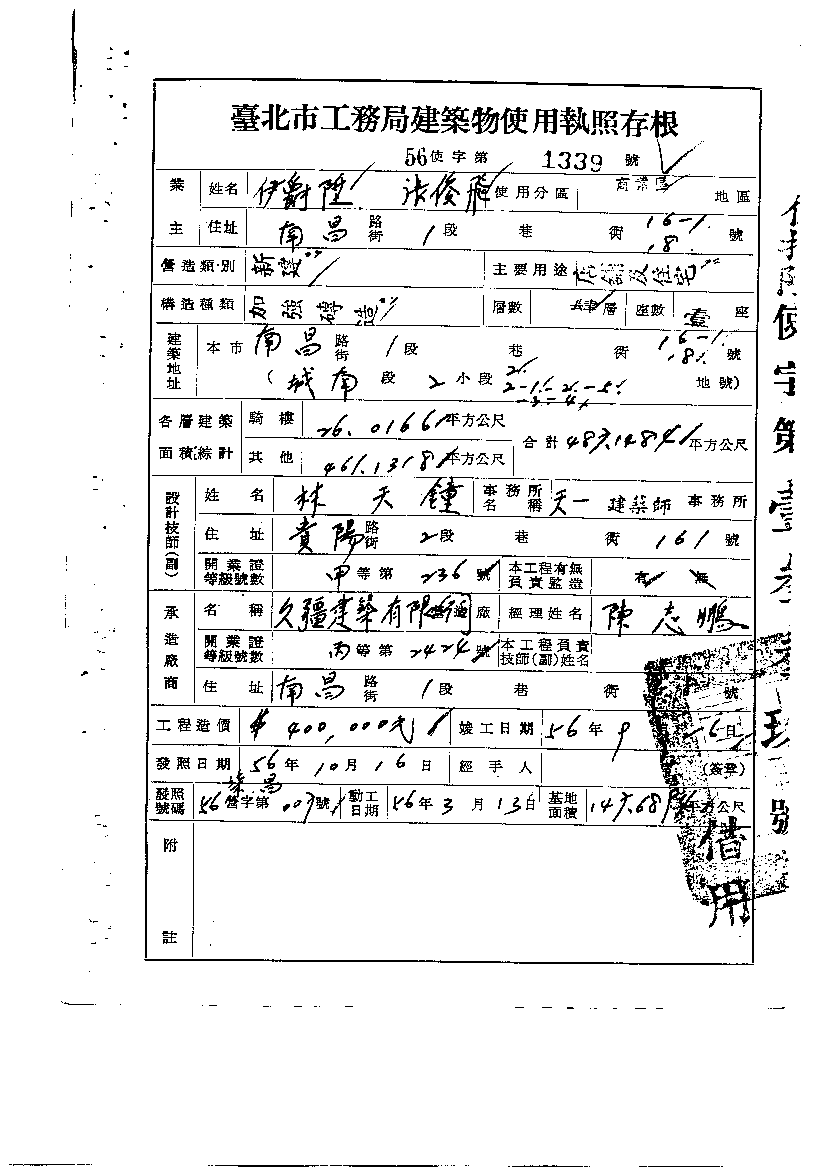 臺北市工務局建築物使用執照存根
56使字第 1339 號
業主 姓名 伊爵陞 法俊飛 使用分區 商業區 地區
住址 南昌 路街 1段 巷 衖 16-1. 18. 號
營造類別 新建 主要用途 店鋪及住宅
構造種類 加強磚造 層數 肆 層 座數 壹 座
建築地址 本市 南昌 路街 1段 巷 衖 16-1. 18. 號
(城南 段 2 小段 地號)
各層建築面積綜計 騎樓 26.0166 平方公尺 合計 487.1484 平方公尺
其他 461.1318 平方公尺
設計技師(副) 姓名 林天鐘 事務所名稱 天一建築師 事務所
住址 貴陽 路街 2段 巷 衖 161 號
開業證等級號數 甲等第 236 號 本工程有無負責監造 有 無
承造廠商 名稱 久疆建築有限公司 營造廠 經理姓名 陳志鵬
開業證等級號數 丙等第 2424 號 本工程負責技師(副)姓名
住址 南昌 路街 1段 巷 衖 號
工程造價 $400,000元 竣工日期 56年9 6日
發照日期 56年10月16日 經手人 (簽章)
發照號碼 56營字第 號 動工日期 56年3月13日 基地面積 平方公尺
附註
借用
使字第壹 號